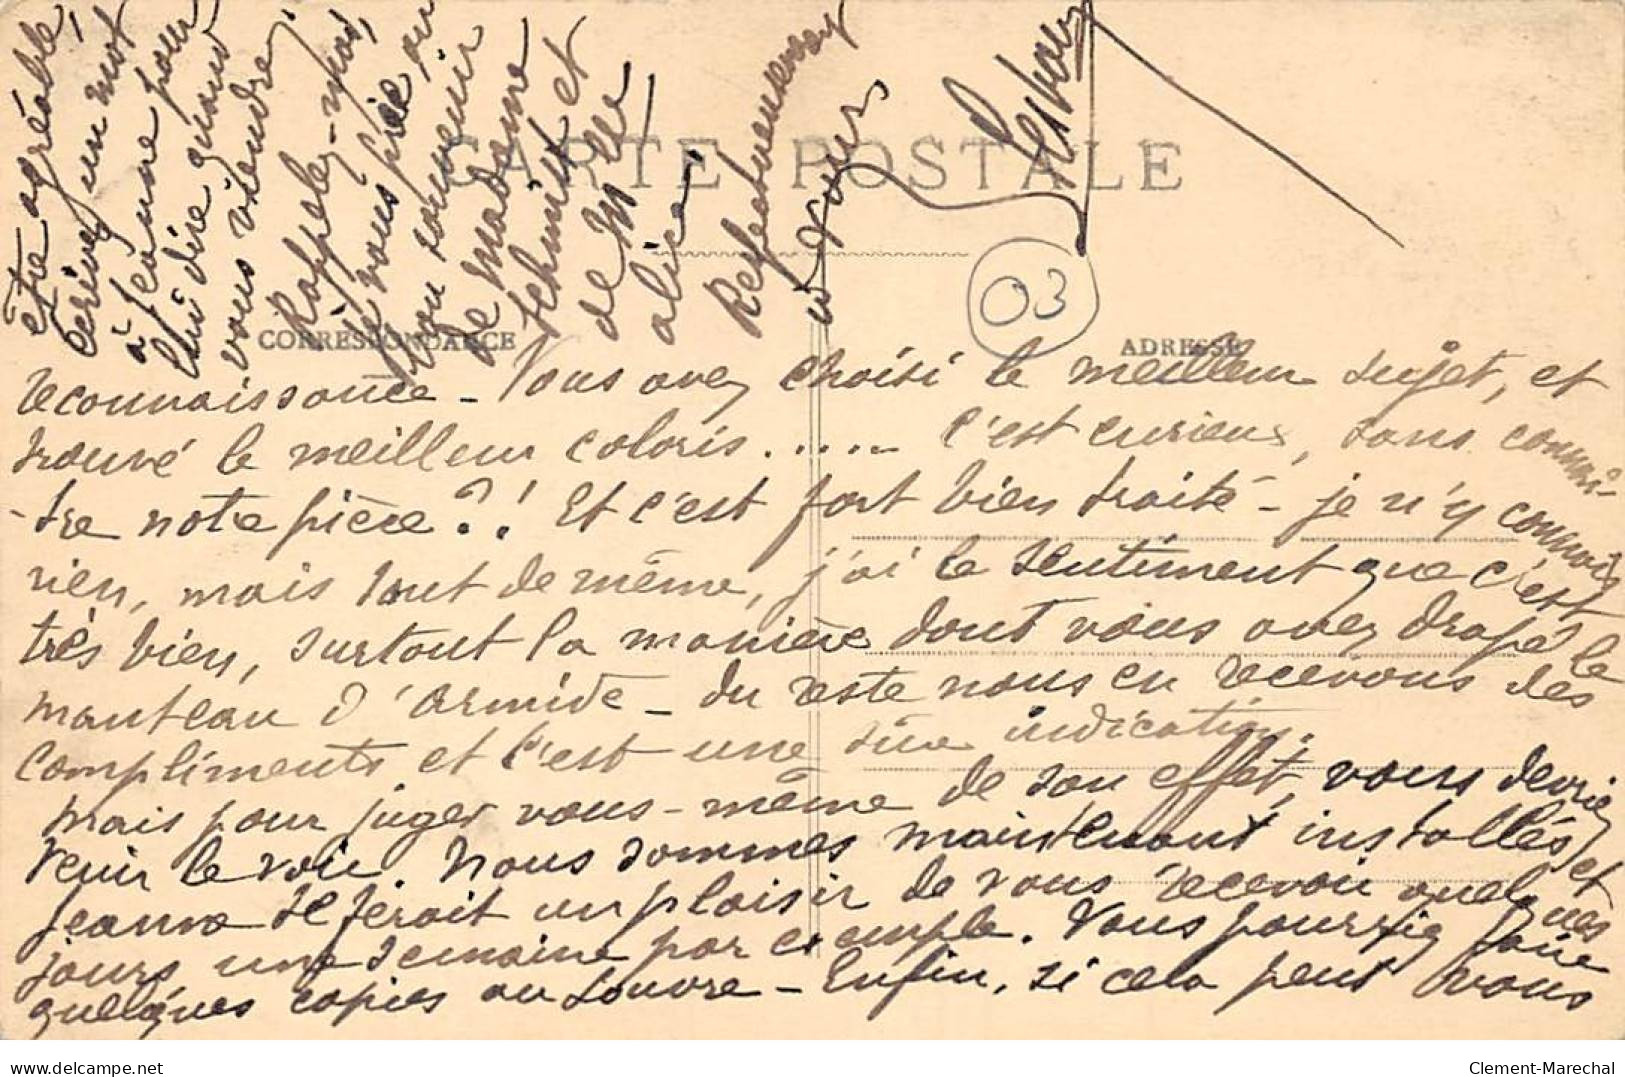 CARTE POSTALE
CORRESPONDANCE
ADRESSE
03
reconnaissance - Vous avez choisi le meilleur sujet, et
trouvé le meilleur coloris..... c'est curieux, sans connaî-
-tre notre pièce?! Et c'est fort bien traité - je n'y connais
rien, mais tout de même, j'ai le sentiment que c'est
très bien, surtout la manière dont vous avez drapé le
manteau d'Armide - du reste nous en recevons des
compliments et c'est une sûre indication.
Mais pour juger vous-même de son effet, vous devriez
venir le voir. Nous sommes maintenant installés et
Jeanne se ferait un plaisir de vous recevoir quelques
jours une semaine par exemple. Vous pourriez faire
quelques copies au Louvre - Enfin, si cela peut vous
être agréable,
écrivez un mot
à Jeanne pour
lui dire quand
vous viendrez
Rappelez-moi,
je vous prie au
bon souvenir
de Madame
Schmitt et
de Mlle
Alice.
Affectueusement
à vous
delcampe.net
Clement-Marechal